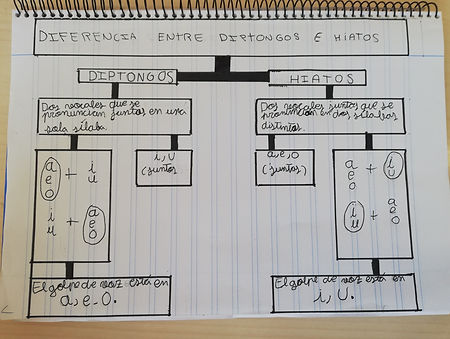 DIFERENCIA ENTRE DIPTONGOS E HIATOS
DIPTONGOS
HIATOS
Dos vocales que se
pronuncian juntos en una
sola sílaba.
Dos vocales juntos que se
pronuncian en dos sílabas
distintas.
a
e
o
+
i
u
i
u
+
a
e
o
i, u
(juntos)
a, e, o
(juntos)
a
e
o
+
i
u
i
u
+
a
e
o
El golpe de voz está en
a, e, o.
El golpe de voz está en
i, u.